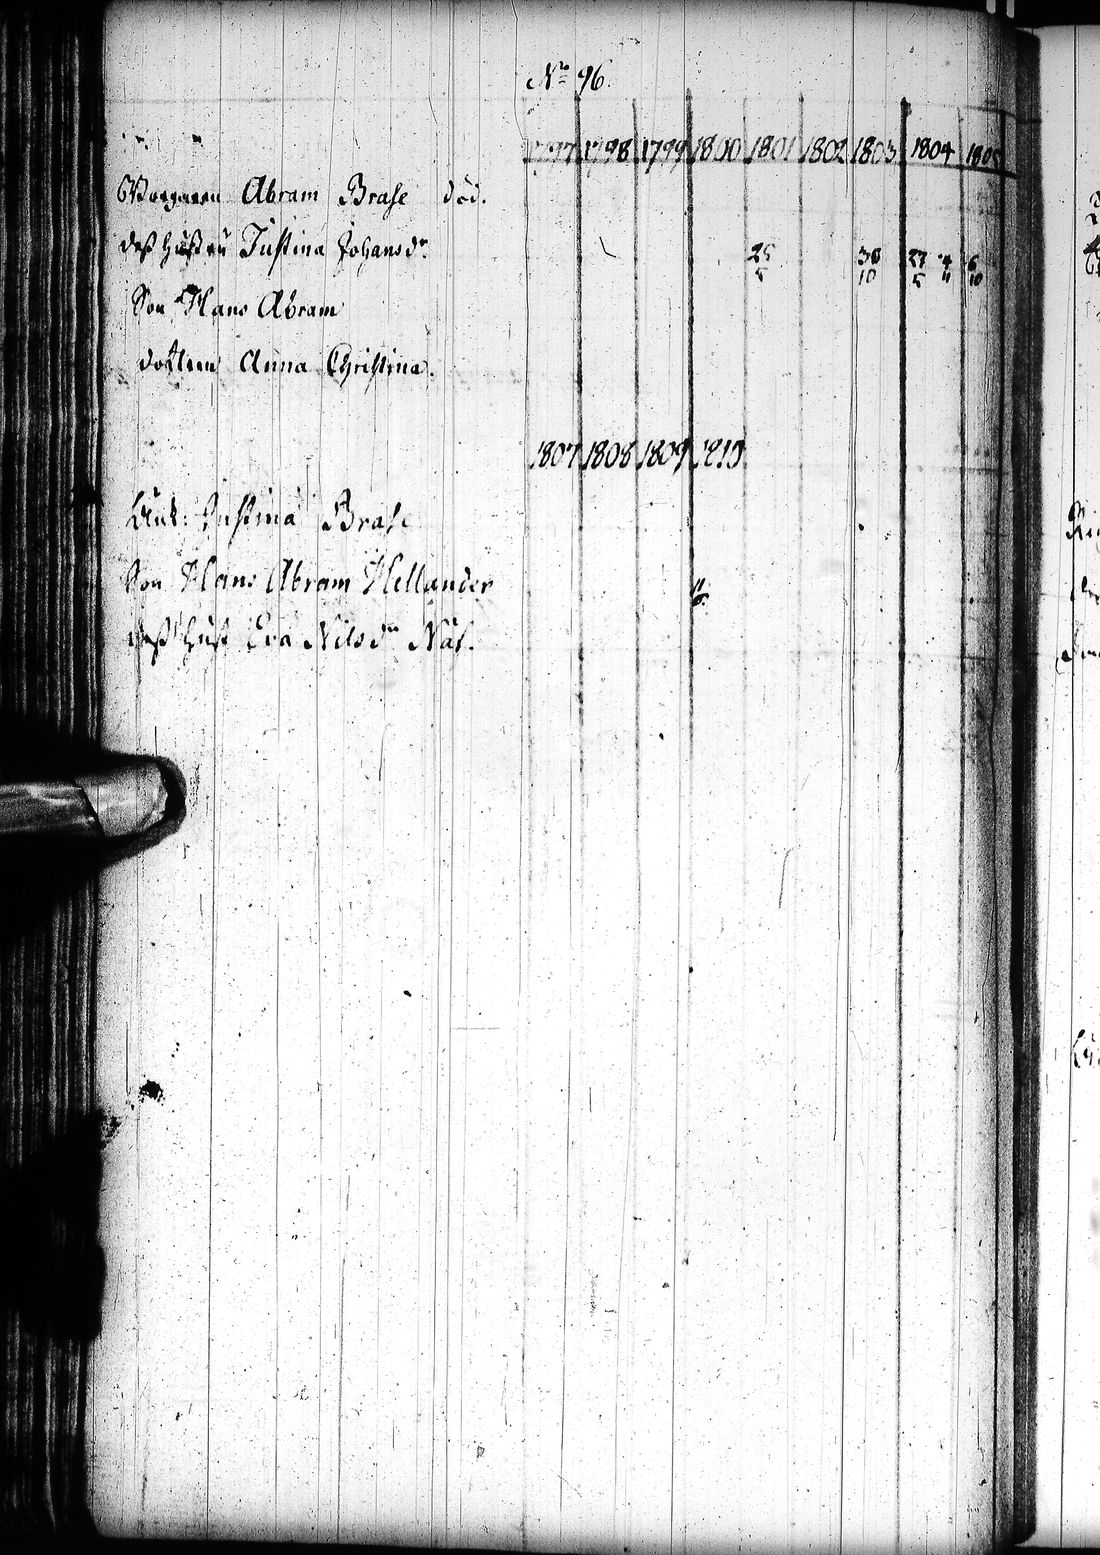 No 96.
1797 1798 1799 1800 1801 1802 1803 1804 1805
Borgaren Abram Brase död.
deß Hustru Justina Johansdr 25/5 30/10 27/5 4/11 6/10
Son Hans Abram
dottren Anna Christina.
1807 1808 1809 1810
Enk: Justina Brase
Son Hans Abram Hellander
deß Hust Eva Nilsdr Näs.